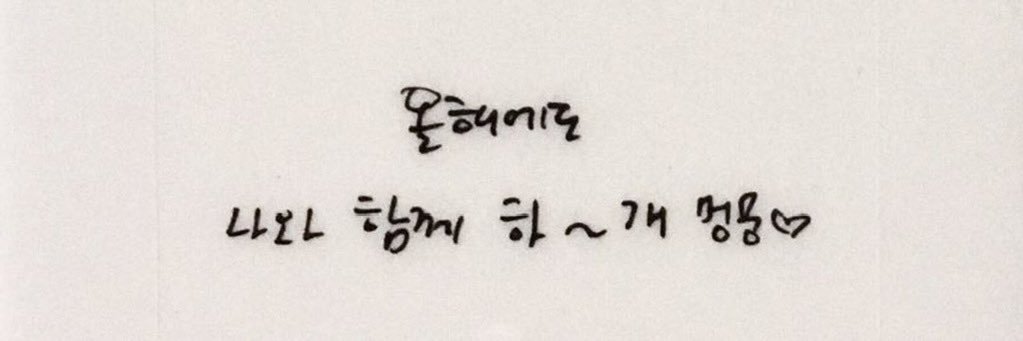 올해에도
나와 함께 하~개 멍뭉♡